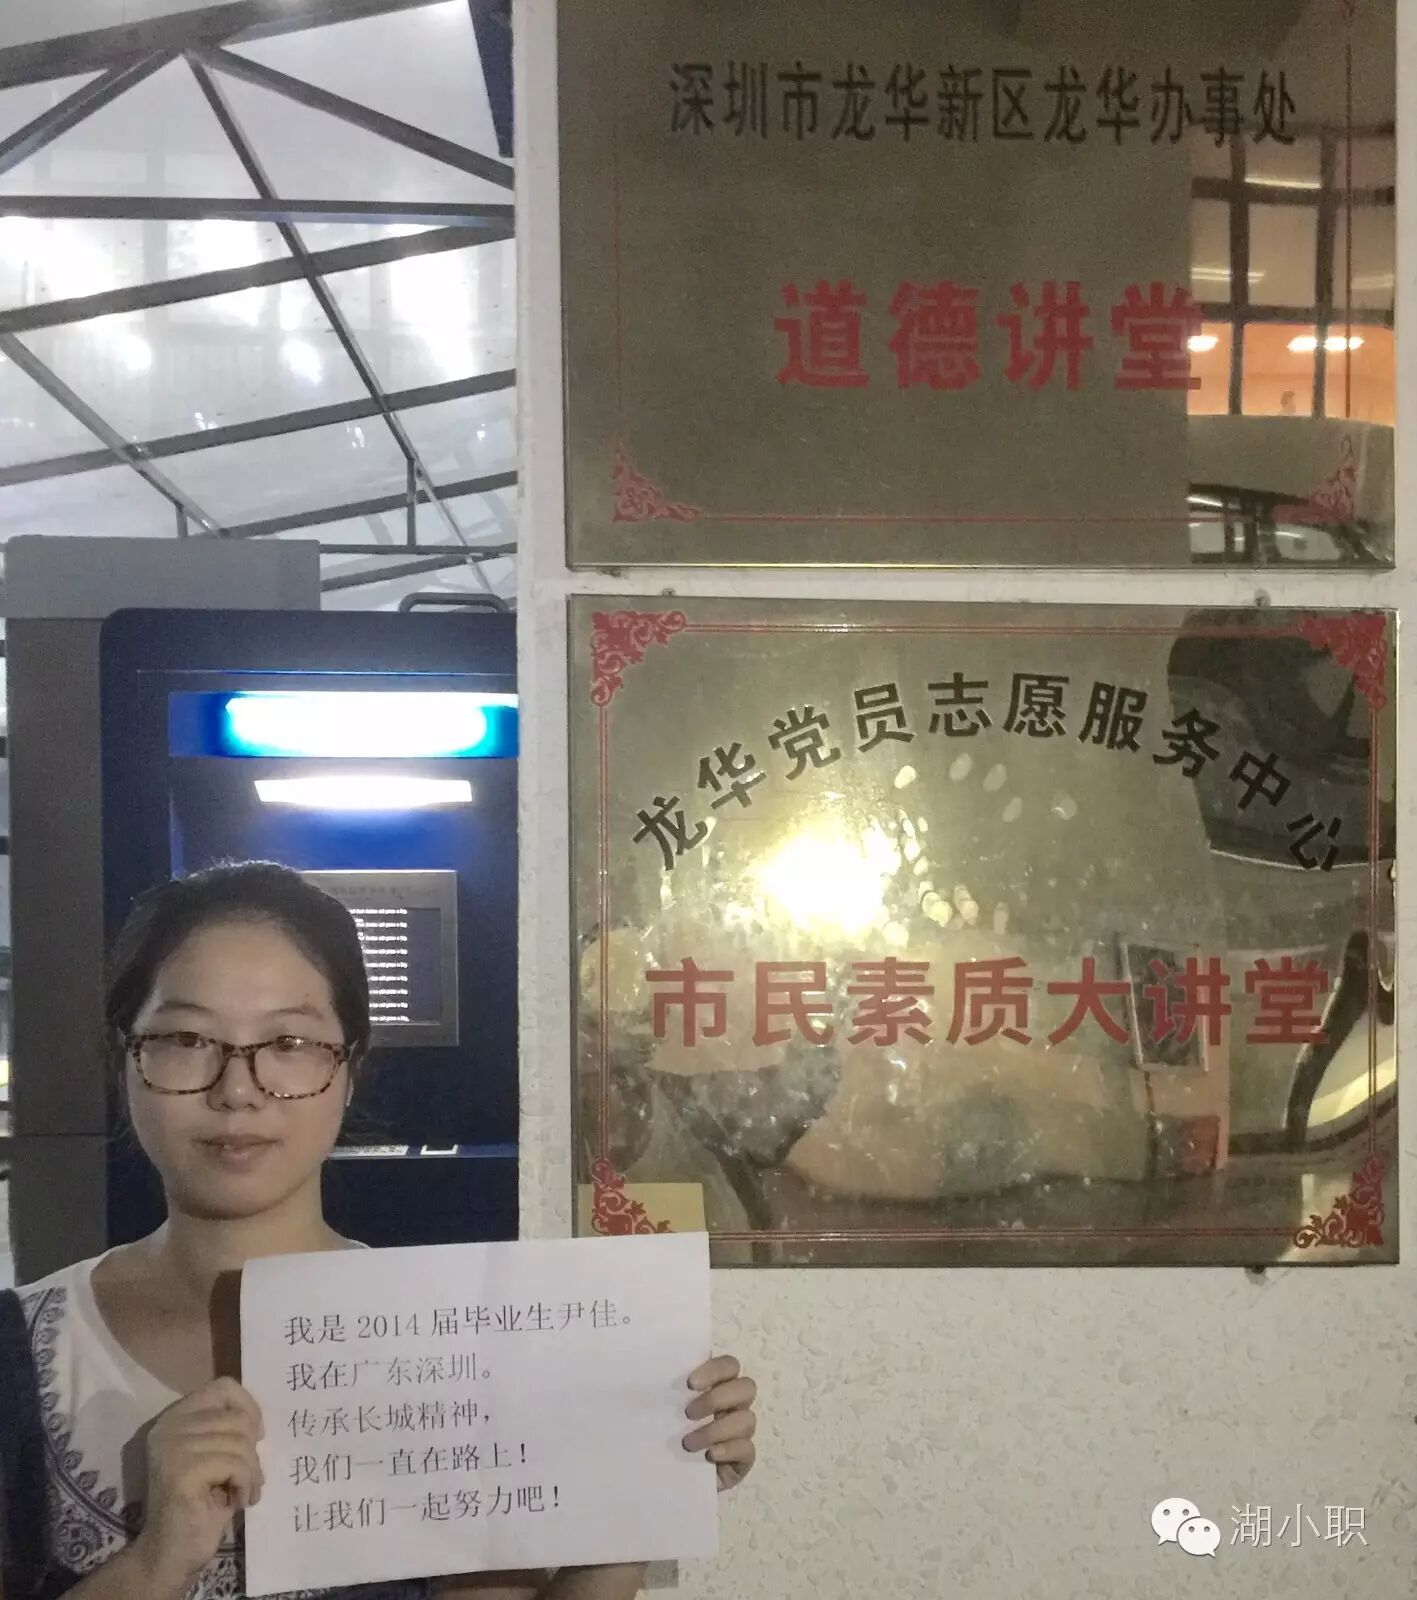 深圳市龙华新区龙华办事处
道德讲堂
龙华党员志愿服务中心
市民素质大讲堂
我是 2014 届毕业生尹佳。
我在广东深圳。
传承长城精神，
我们一直在路上！
让我们一起努力吧！
湖小职